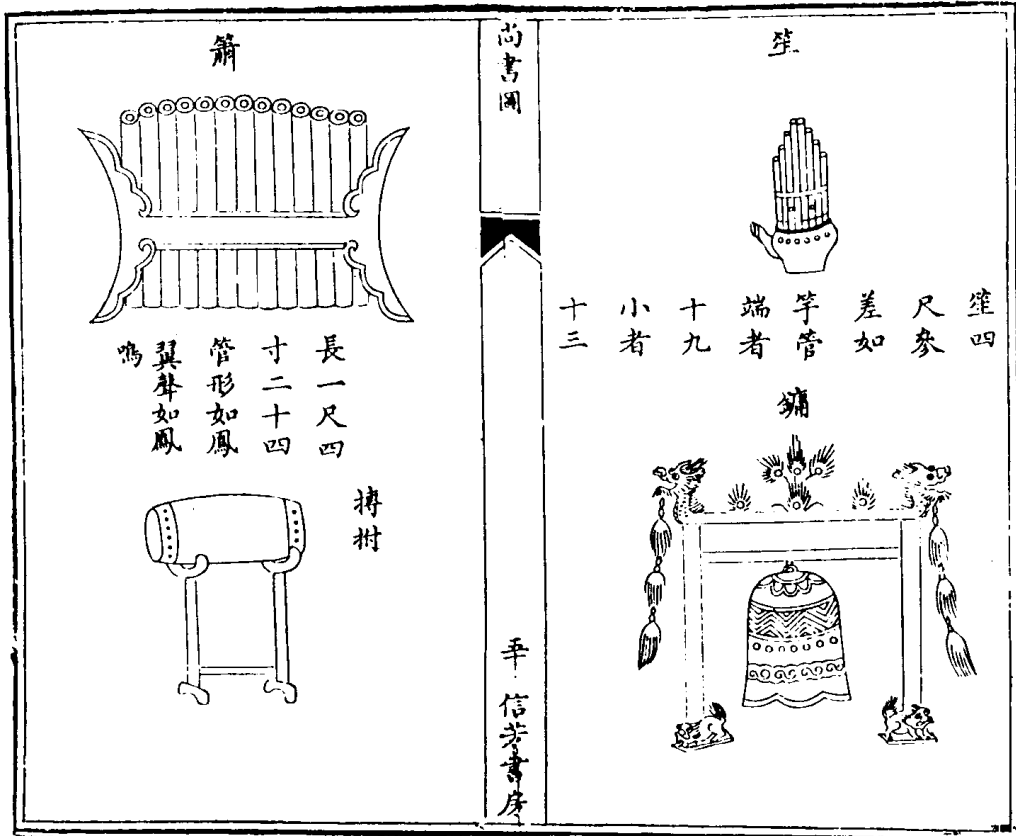 笙
笙四
尺參
差如
竽管
端者
十九
小者
十三
鏞
尚書圖
五十
信芳書房
簫
長一尺四
寸二十四
管形如鳳
翼聲如鳳
鳴
搏拊